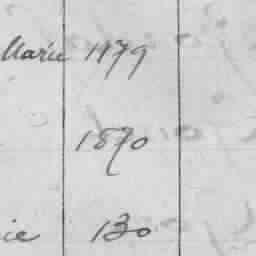 Marie 1179
1870
ie 130